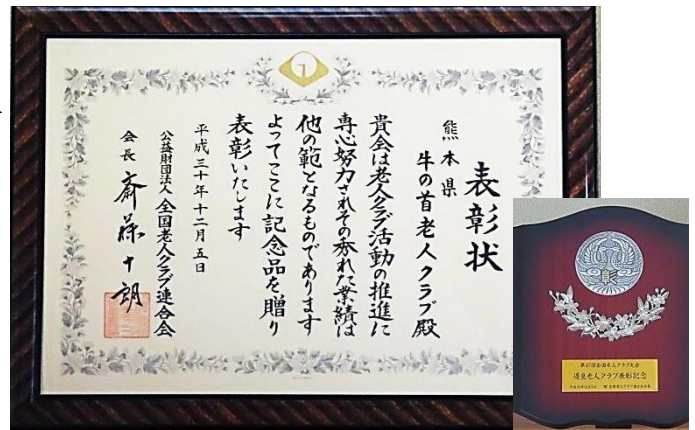 表彰状
熊本県
牛の首老人クラブ殿
貴会は老人クラブ活動の推進に
専心努力されその秀れた業績は
他の範となるものであります
よってここに記念品を贈り
表彰いたします
平成三十年十二月五日
公益財団法人 全国老人クラブ連合会
会長 斎藤十朗
第47回全国老人クラブ大会
優良老人クラブ表彰記念